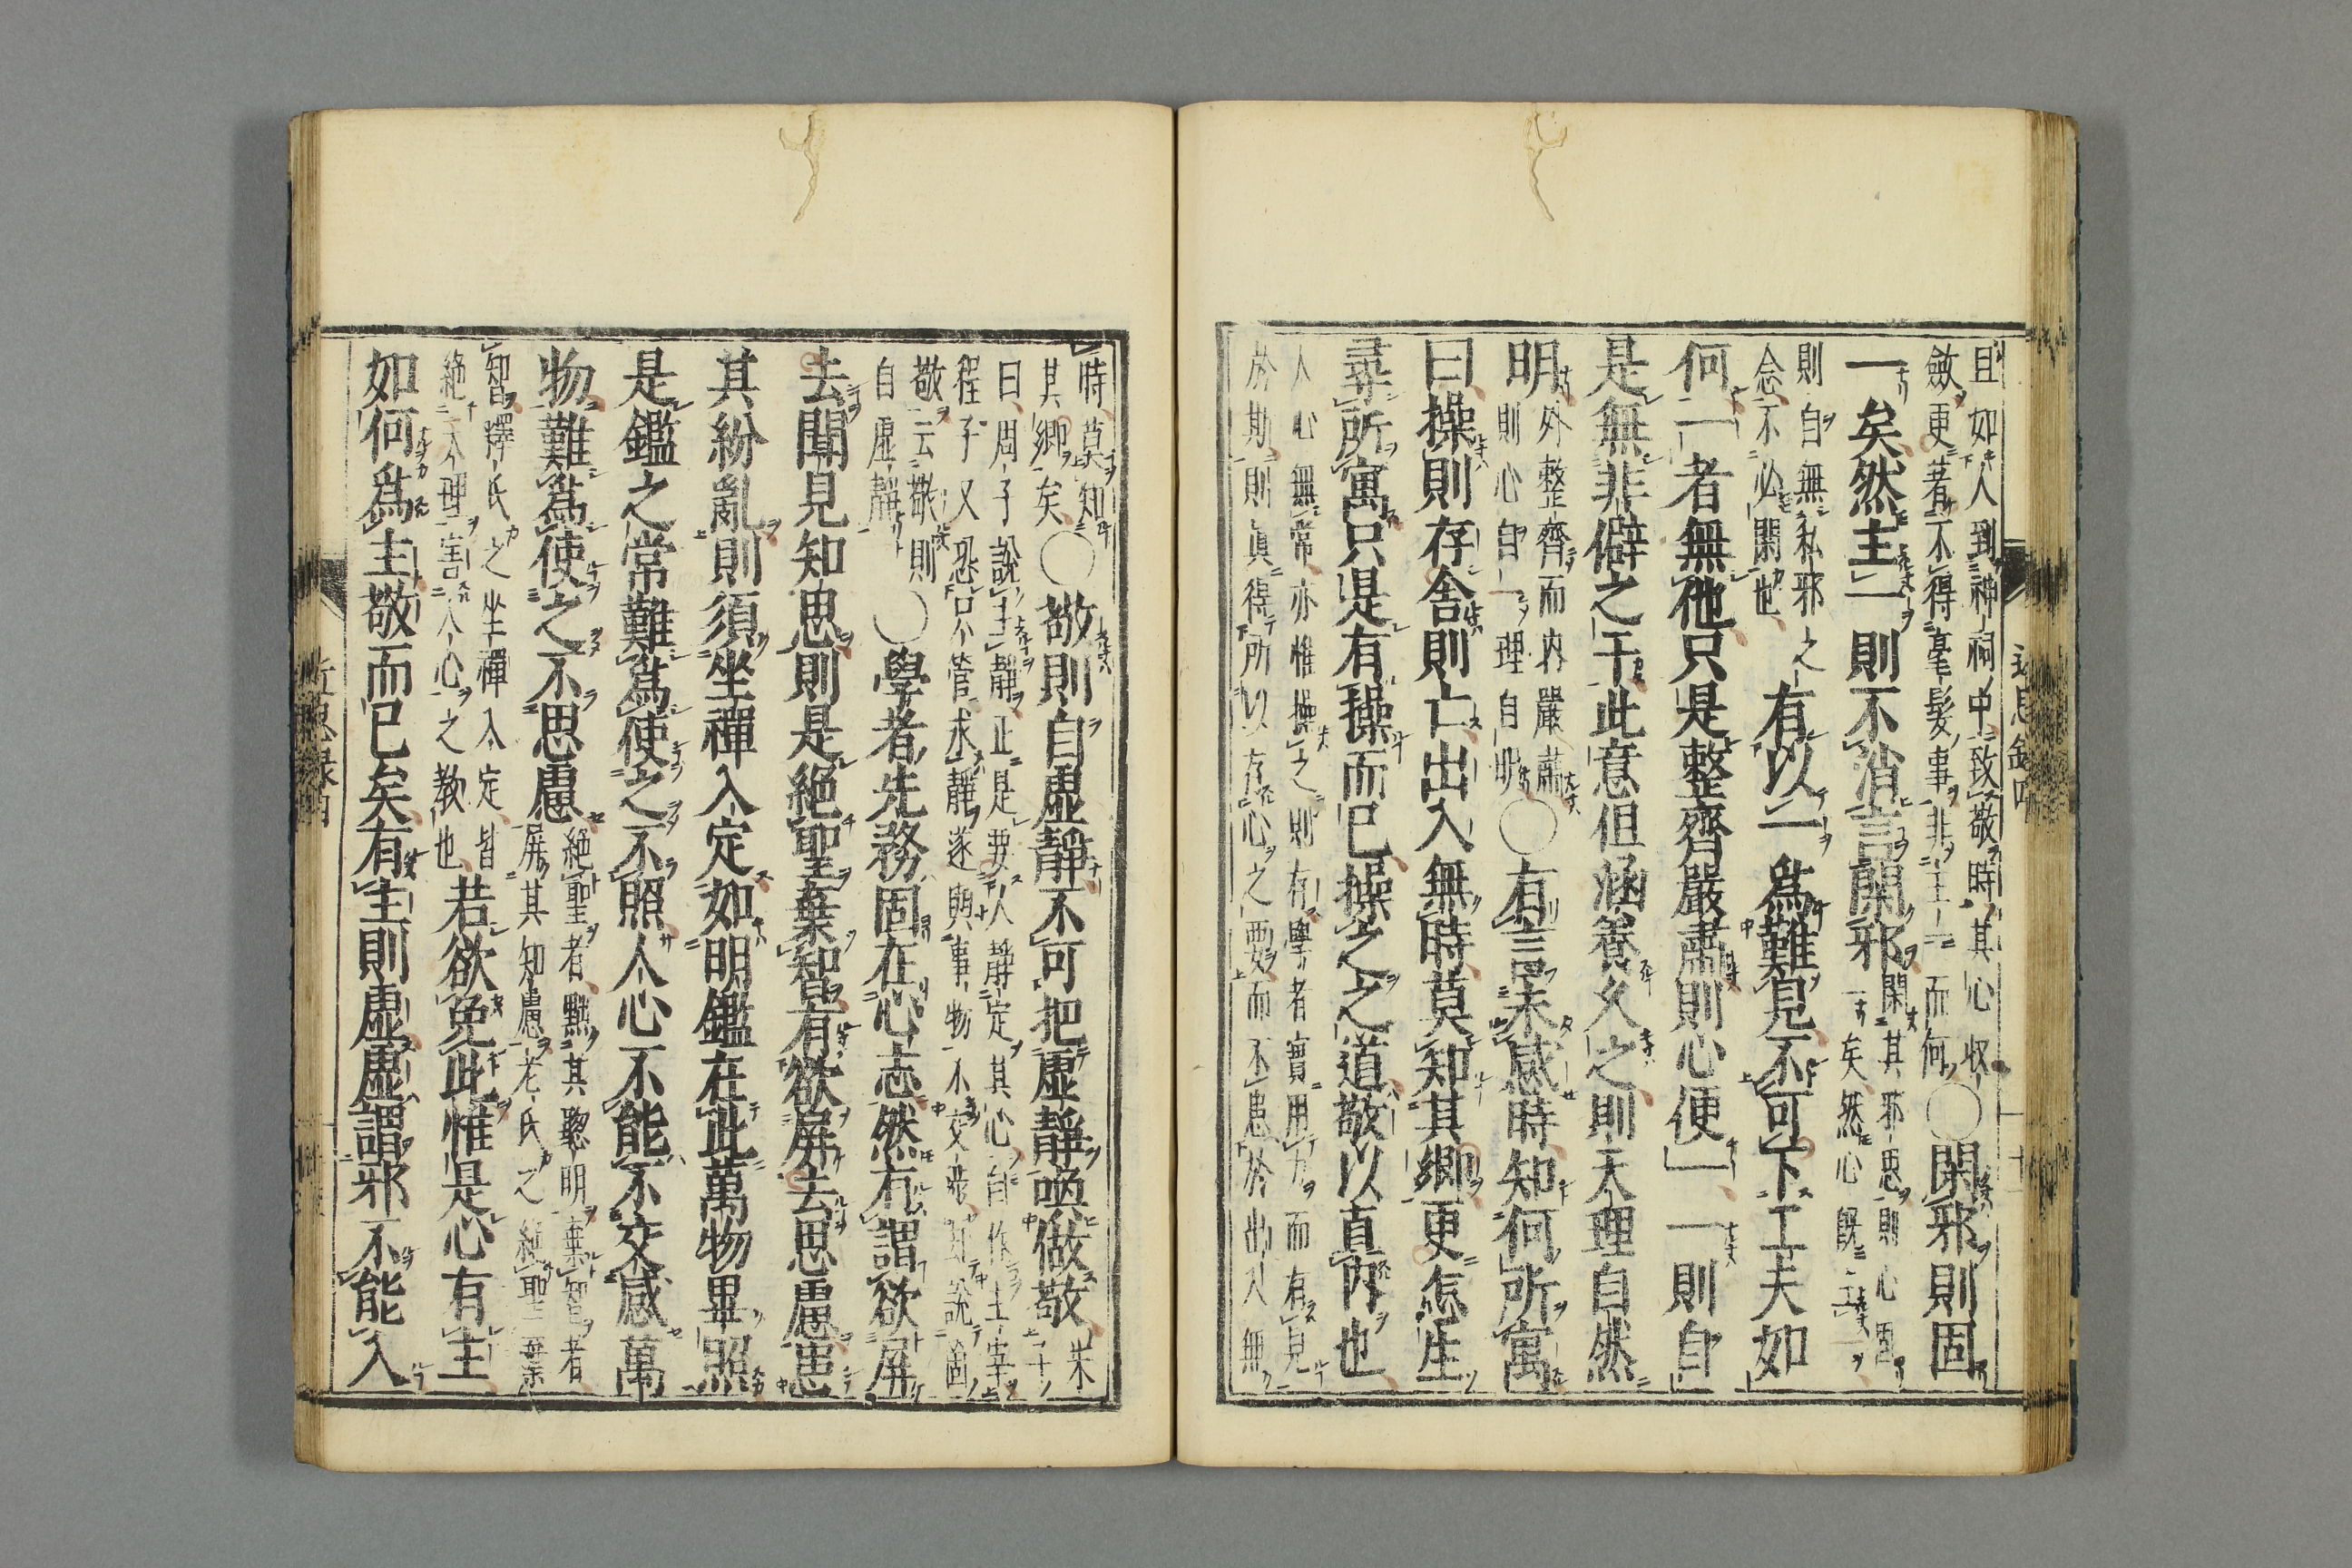 且如人到神祠中致敬時其心收
斂更著不得毫髮事非主一而何○閑邪則固
一矣然主一則不消言閑邪閑其邪思則心固
一矣然心既主一
則自無私邪之
念不必閑也有以一爲難見不可下工夫如
何一者無他只是整齊嚴肅則心便一一則自
是無非僻之干此意但涵養久之則天理自然
明外整齊而內嚴肅
則心自一理自明○有言未感時知何所寓
曰操則存舍則亡出入無時莫知其鄉更怎生
尋所寓只是有操而已操之之道敬以直內也
人心無常亦惟操之則有學者實用力而有見
於斯則眞得所以存心之要而不患於出入無
時莫知
其鄉矣○敬則自虛靜不可把虛靜喚做敬朱子
曰周子說主靜正是要人靜定其心自作主宰
程子又恐只管求靜遂與事物不交涉却說箇
敬云敬則
自虛靜○學者先務固在心志然有謂欲屏
去聞見知思則是絕聖棄智有欲屏去思慮患
其紛亂則須坐禪入定如明鑑在此萬物畢照
是鑑之常難爲使之不照人心不能不交感萬
物難爲使之不思慮絕聖者黜其聰明棄智者
屏其知慮老氏之絕聖棄
智釋氏之坐禪入定皆
絕人理害人心之教也若欲免此惟是心有主
如何爲主敬而已矣有主則虛虛謂邪不能入
近思録四